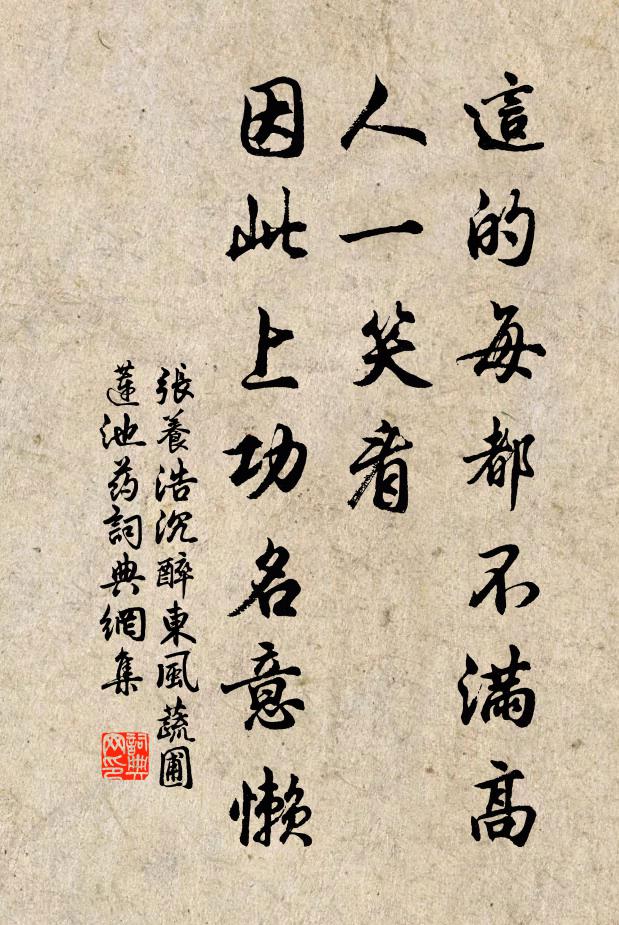 這的每都不滿高
人一笑看
因此上功名意懶
張養浩沉醉東風蔬圃
蓮池药詞典網集
詞典
网印